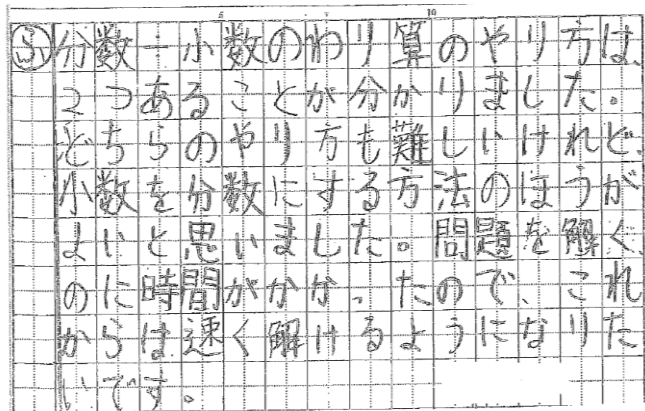 ㋫分数÷小数のわり算のやり方は、
2つあることが分かりました。
どちらのやり方も難しいけれど、
小数を分数にする方法のほうが
よいと思いました。問題を解く
のに時間がかかったので、これ
からは速く解けるようになりた
いです。